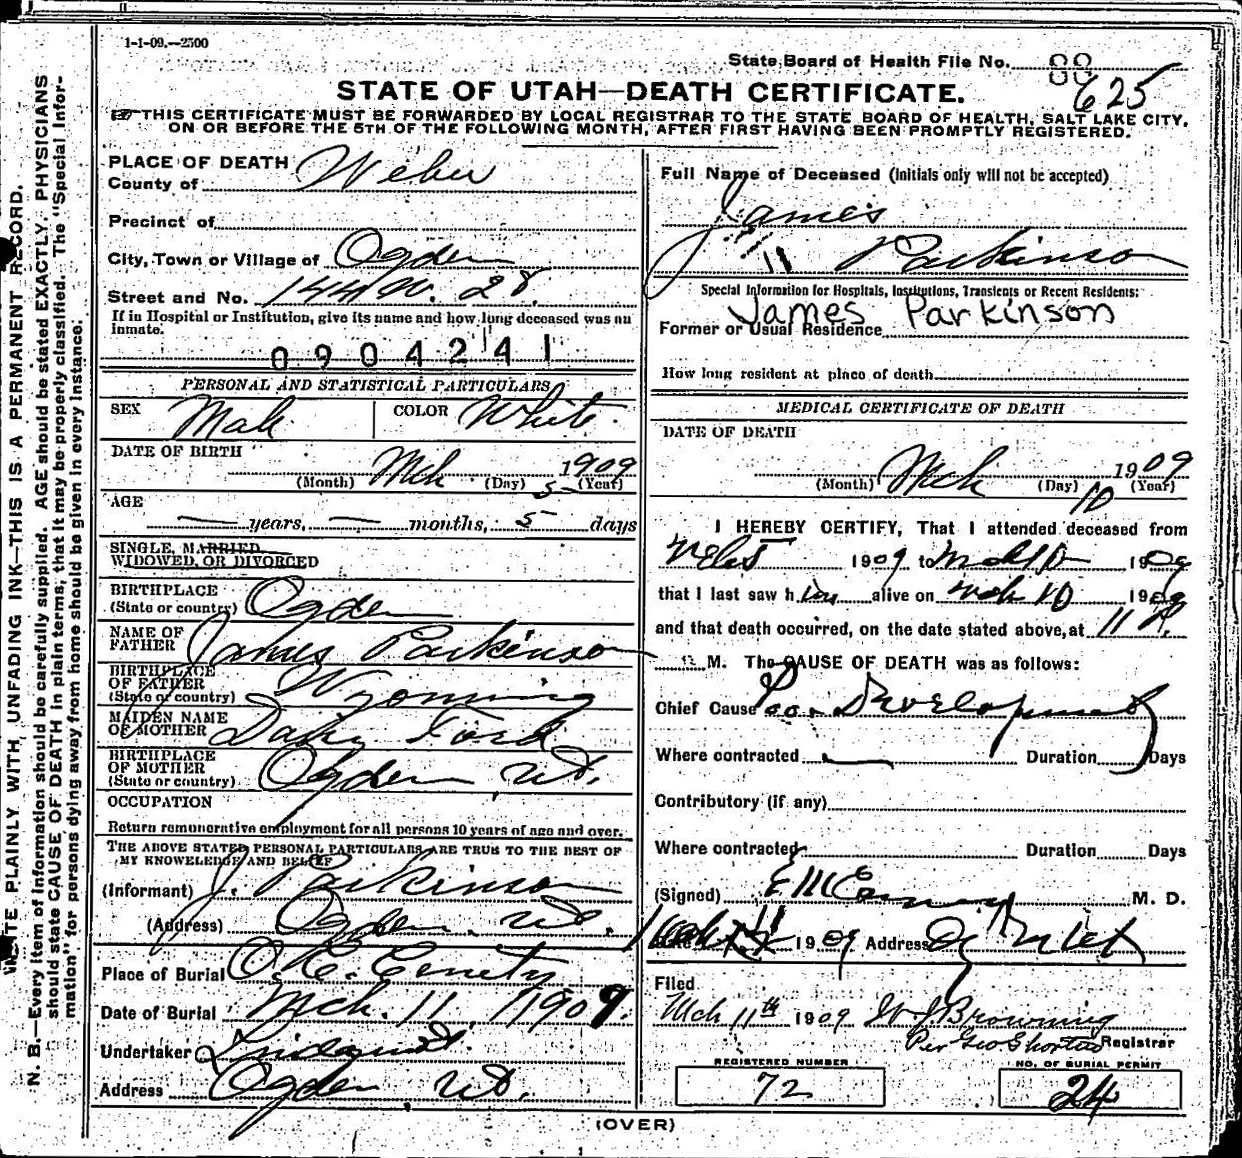 1-1-09.—2500
State Board of Health File No. 88
625
STATE OF UTAH—DEATH CERTIFICATE.
☞ THIS CERTIFICATE MUST BE FORWARDED BY LOCAL REGISTRAR TO THE STATE BOARD OF HEALTH, SALT LAKE CITY,
ON OR BEFORE THE 5TH OF THE FOLLOWING MONTH, AFTER FIRST HAVING BEEN PROMPTLY REGISTERED.
PLACE OF DEATH
County of Weber
Precinct of
City, Town or Village of Ogden
Street and No. 144 W. 28.
If in Hospital or Institution, give its name and how long deceased was an
inmate.
0904241
PERSONAL AND STATISTICAL PARTICULARS
SEX Male COLOR White
DATE OF BIRTH Mch 5 1909
(Month) (Day) (Year)
AGE
— years, — months, 5 days
SINGLE, MARRIED
WIDOWED, OR DIVORCED
BIRTHPLACE
(State or country) Ogden
NAME OF
FATHER James Parkinson
BIRTHPLACE
OF FATHER
(State or country) Wyoming
MAIDEN NAME
OF MOTHER Ford
BIRTHPLACE
OF MOTHER
(State or country) Ogden, Ut.
OCCUPATION
Return remunerative employment for all persons 10 years of age and over.
THE ABOVE STATED PERSONAL PARTICULARS ARE TRUE TO THE BEST OF
MY KNOWELEDGE AND BELIEF
(Informant) J. Parkinson
(Address) Ogden. Ut.
Place of Burial
Date of Burial Mch. 11, 1909.
Undertaker Lindquist.
Address Ogden, Ut.
Full Name of Deceased (Initials only will not be accepted)
James
Parkinson
Special Information for Hospitals, Institutions, Transients or Recent Residents:
James Parkinson
Former or Usual Residence
How long resident at place of death
MEDICAL CERTIFICATE OF DEATH
DATE OF DEATH
Mch 10 1909
(Month) (Day) (Year)
I HEREBY CERTIFY, That I attended deceased from
1909 to Mch 10 1909
that I last saw him alive on Mch 10 1909
and that death occurred, on the date stated above, at 11 P.
M. The CAUSE OF DEATH was as follows:
Chief Cause Poor Development
Where contracted — Duration Days
Contributory (if any)
Where contracted Duration Days
(Signed) M. D.
1909 Address
Filed
Mch 11th 1909 W J Browning
Per Geo Shorten Registrar
REGISTERED NUMBER
72
NO. OF BURIAL PERMIT
24
(OVER)
N. B.—Every item of information should be carefully supplied. AGE should be stated EXACTLY. PHYSICIANS
should state CAUSE OF DEATH in plain terms, that it may be properly classified. The "Special Infor-
mation" for persons dying away from home should be given in every instance.
WRITE PLAINLY WITH UNFADING INK—THIS IS A PERMANENT RECORD.